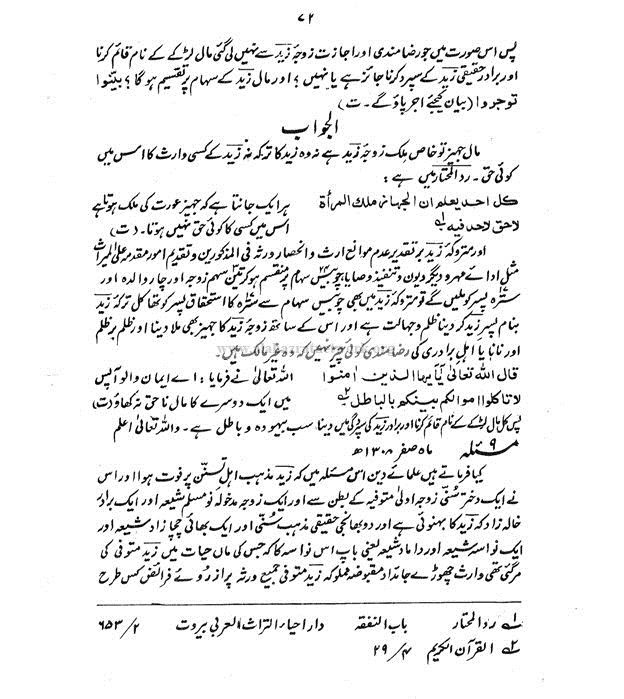 ۷۲
پس اس صورت میں جو رضامندی اور اجازت زوجۂ زید سے نہیں لی گئی مال لڑکے کے نام قائم کرنا
اور برادر حقیقی زید کے سپرد کرنا جائز ہے یا نہیں ؟ اور مال زید کے سہام پر تقسیم ہوگا ؟ بیّنوا
توجروا (بیان کیجئے اجر پاؤ گے ۔ ت)
الجواب
مال جہیز تو خاص ملک زوجۂ زید ہے نہ وہ زید کا ترکہ نہ زید کے کسی وارث کا اس میں
کوئی حق ۔ ردالمحتار میں ہے :
کل احد یعلم ان الجہاز ملك المرأۃ لاحق لاحد فیہ ۱؎
ہر ایک جانتا ہے کہ جہیز عورت کی ملک ہوتا ہے اس میں کسی کا کوئی حق نہیں ہوتا ۔ (ت)
اور متروکۂ زید بر تقدیر عدم موانع ارث و انحصار ورثہ فی المذکورین و تقدیم امور مقدم علی المیراث
مثل ادائے مہر و دیگر دیون و تنفیذ وصایا چوبیس ۲۴ سہام پر منقسم ہو کر تین سہم زوجہ اور چار والدہ اور
سترہ پسر کو ملیں گے تو متروکۂ زید میں بھی چوبیس سہام سے سترہ کا استحقاق پسر کو تھا کل ترکۂ زید
بنام پسر زید کر دینا ظلم و جہالت ہے اور اس کے ساتھ زوجۂ زید کا جہیز بھی ملا دینا اور ظلم بر ظلم
اور نانا یا اہل برادری کی رضامندی کوئی چیز نہیں کہ وہ غیر مالک ہیں
قال اللہ تعالیٰ یٰایہا الذین اٰمنوا لاتاکلوا اموالکم بینکم بالباطل ۲؎
اللہ تعالیٰ نے فرمایا : اے ایمان والو آپس میں ایک دوسرے کا مال ناحق نہ کھاؤ (ت)
پس کل مال لڑکے کے نام قائم کرنا اور برادر زید کی سپردگی میں دینا سب بیہودہ و باطل ہے ۔ واللہ تعالیٰ اعلم
مسئلہ ۹ ماہ صفر ۱۳۰۸ھ
کیا فرماتے ہیں علمائے دین اس مسئلہ میں کہ زید مذہب اہل تسنن پر فوت ہوا اور اس
نے ایک دختر سُنّی زوجہ اولیٰ متوفیہ کے بطن سے اور ایک زوجہ مدخولہ نو مسلم شیعہ اور ایک برادر
خالہ زاد کہ زید کا بہنوئی ہے اور دو بھانجی حقیقی مذہب سُنّی اور ایک بھائی چچا زاد شیعہ اور
ایک نواسہ شیعہ اور داماد شیعہ یعنی باپ اس نواسہ کا کہ جس کی ماں حیات میں زید متوفی کی
مر گئی تھی وارث چھوڑے جائداد مقبوضہ مملوکہ زید متوفی جمیع ورثہ پر از روئے فرائض کس طرح
۱؎ ردالمحتار باب النفقہ دار احیاء التراث العربی بیروت ۲/ ۶۵۳
۲؎ القرآن الکریم ۴/ ۲۹